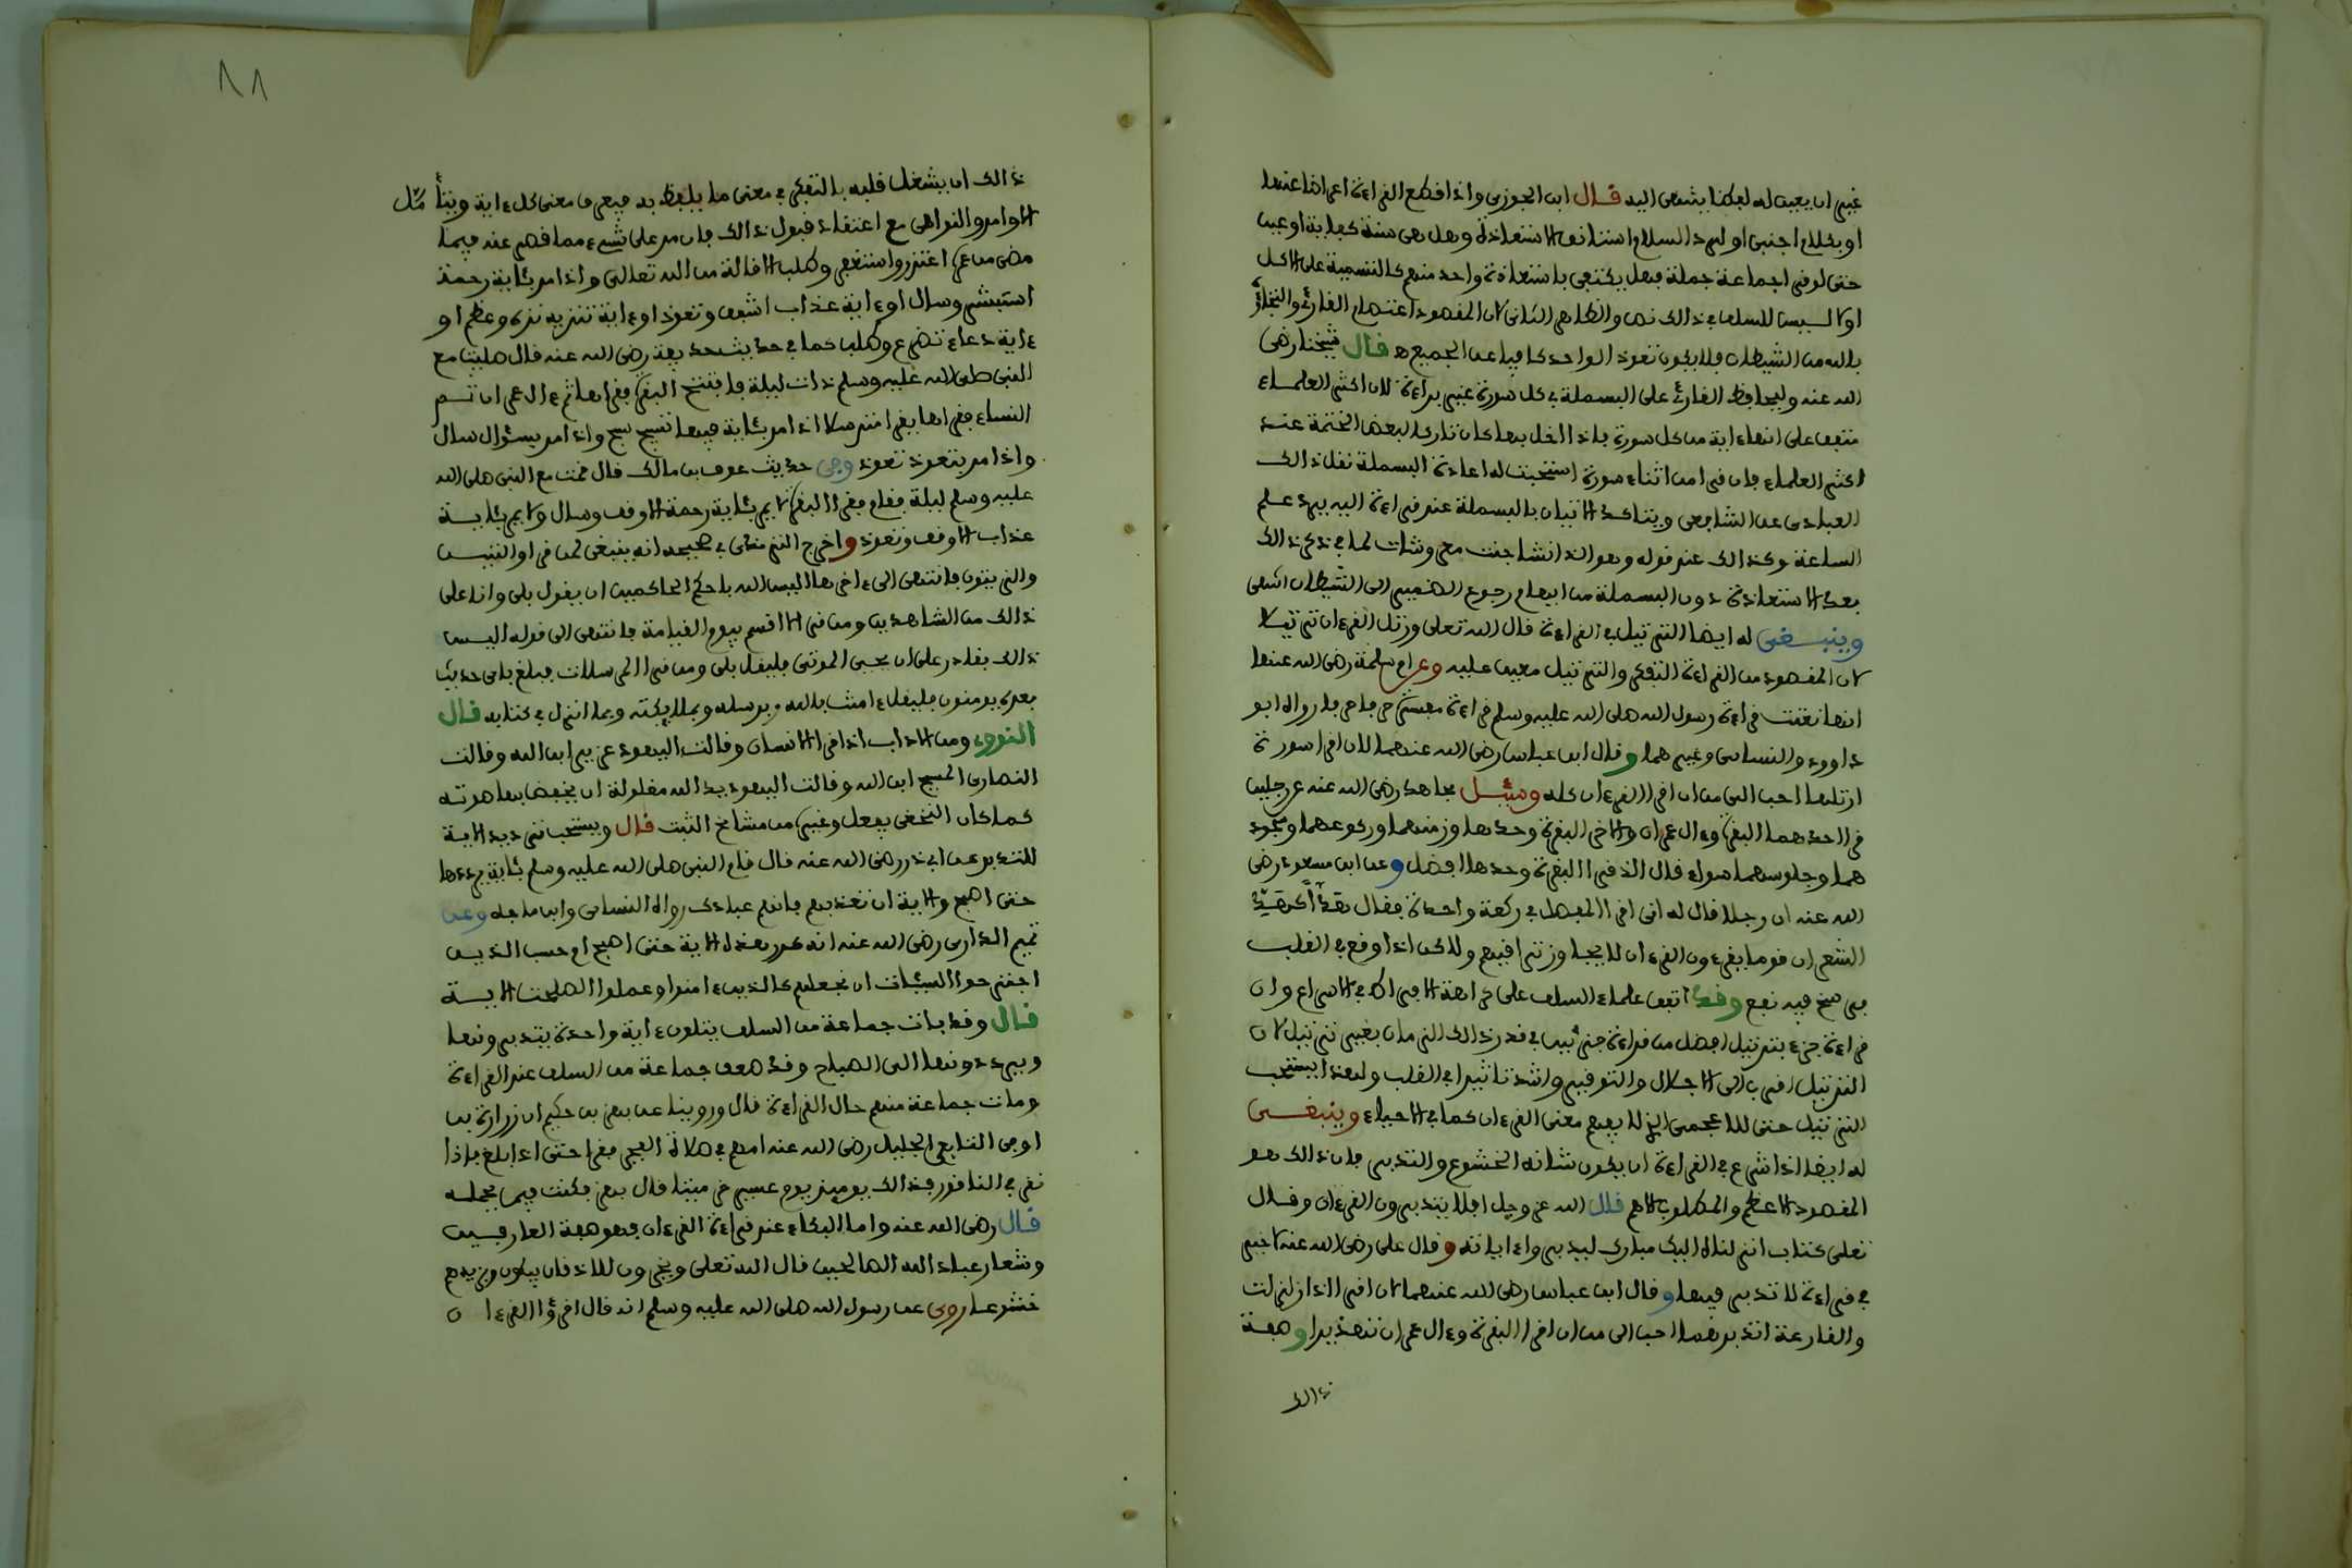 غيره ان يعين له لفظا ينتهى اليه قال ابن الجوزى واذا قطع القراءة اعراضا عنها
او بكلام اجنبى او لرد السلام استانف الاستعاذة وهل هى سنة كفاية او عين
حتى لو قرا جماعة جملة فهل يكفى باستعاذة واحد منهم كالتسمية على الاكل
او لا ليس للسلف فى ذالك نص والظاهر الثانى لان المقصود اعتصام القارئ والتجاؤه
بالله من الشيطان فلا يكون تعوذ الواحد كافيا عن الجميع ه قال شيخنا رضى
الله عنه وليحافظ القارئ على البسملة فى كل سورة غير براءة لان اكثر العلماء
متفق على انها ءاية من كل سورة فاذا اخل بها كان تاركا لبعض الختمة عند
اكثر العلماء فان قرا من اثناء سورة استحبت له اعادة البسملة نقل ذالك
العبادى عن الشافعى ويتاكد الاتيان بالبسملة عند قراءة اليه يرد علم
الساعة وكذالك عند قوله وهو الذى انشا جنت معروشات لما فى ذكر ذالك
بعد الاستعاذة دون البسملة من ايهام رجوع الضمير الى الشيطان انتهى
وينبغى له ايضا الترتيل فى القراءة قال الله تعلى ورتل القرءان ترتيلا
لان المقصود من القراءة التفكر والترتيل معين عليه وعن ام سلمة رضى الله عنها
انها نعتت قراءة رسول الله صلى الله عليه وسلم قراءة مفسرة حرفا حرفا رواه ابو
داوود والنساءى وغيرهما وقال ابن عباس رضى الله عنهما لان اقرا سورة
ارتلها احب الى من ان اقرا القرءان كله وسئل مجاهد رضى الله عنه عن رجلين
قرا احدهما البقرة وءال عمران والاخر البقرة وحدها وزمنهما وركوعهما وسجود
هما وجلوسهما سواء قال الذى قرا البقرة وحدها افضل وعن ابن مسعود رضى
الله عنه ان رجلا قال له انى اقرا المفصل فى ركعة واحدة فقال هذا كهذ
الشعر ان قوما يقرءون القرءان لا يجاوز تراقيهم ولاكن اذا وقع فى القلب
فرسخ فيه نفع وقد اتفق علماء السلف على كراهة الافراط فى الاسراع وان
قراءة جزء بترتيل افضل من قراءة جزئين فى قدر ذالك الزمان بغير ترتيل لان
الترتيل اقرب الى الاجلال والتوقير واشد تاثيرا فى القلب ولهذا يستحب
الترتيل حتى للاعجمى الذى لا يفهم معنى القرءان كما فى الاحياء وينبغى
له ايضا اذا شرع فى القراءة ان يكون شانه الخشوع والتدبر فان ذالك هو
المقصود الاعظم والمطلوب الاهم قال الله عز وجل افلا يتدبرون القرءان وقال
تعلى كتاب انزلناه اليك مبارك ليدبروا ءاياته وقال على رضى الله عنه لا خير
فى قراءة لا تدبر فيها وقال ابن عباس رضى الله عنهما لان اقرا اذا زلزلت
والقارعة اتدبرهما احب الى من ان اقرا البقرة وءال عمران تهذيرا وصفة
ذالك
ذالك ان يشغل قلبه بالتفكر فى معنى ما يلفظ به فيعرف معنى كل ءاية ويتأمل
الاوامر والنواهى مع اعتقاد قبول ذالك فان مر على شىء مما قصر عنه فيما
مضى من عمره اعتذر واستغفر وطلب الاقالة من الله تعالى واذا مر بئاية رحمة
استبشر وسال او ءاية عذاب اشفق وتعوذ او ءاية تنزيه نزه وعظم او
ءاية دعاء تضرع وطلب كما فى حديث حذيفة رضى الله عنه قال صليت مع
النبى صلى الله عليه وسلم ذات ليلة فافتتح البقرة فقراها ثم ءال عمران ثم
النساء فقراها يقرا مترسلا اذا مر بئاية فيها تسبيح سبح واذا مر بسؤال سال
واذا مر بتعوذ تعوذ وفى حديث عوف بن مالك قال قمت مع النبى صلى الله
عليه وسلم ليلة فقام فقرا البقرة لا يمر بئاية رحمة الا وقف وسال ولا يمر بئاية
عذاب الا وقف وتعوذ واخرج الترمذى فى صحيحه انه ينبغى لمن قرا والتين
والزيتون فانتهى الى ءاخرها اليس الله باحكم الحاكمين ان يقول بلى وانا على
ذالك من الشاهدين ومن قرا لا اقسم بيوم القيامة فانتهى الى قوله اليس
ذالك بقادر على ان يحيى الموتى فليقل بلى ومن قرا المرسلات فبلغ فباى حديث
بعده يومنون فليقل ءامنت بالله وبرسله وبملايكته وبما انزل فى كتابه قال
النووى ومن الاداب اذا قرا الانسان وقالت اليهود عزير ابن الله وقالت
النصارى المسيح ابن الله وقالت اليهود يد الله مغلولة ان يخفض بها صوته
كما كان النخعى يفعل وغيره من مشائخ الثبت قال ويستحب ترديد الاية
للتدبر عن ابى ذر رضى الله عنه قال قام النبى صلى الله عليه وسلم بئاية يرددها
حتى اصبح والاية ان تعذبهم فانهم عبادك رواه النساءى وابن ماجه وعن
تميم الدارى رضى الله عنه انه كرر هذه الاية حتى اصبح ام حسب الذين
اجترحوا السيئات ان نجعلهم كالذين ءامنوا وعملوا الصلحت الاية
قال وقد بات جماعة من السلف يتلون ءاية واحدة يتدبرونها
ويرددونها الى الصباح وقد صعق جماعة من السلف عند القراءة
ومات جماعة منهم حال القراءة قال وروينا عن بهز بن حكيم ان زرارة بن
اوفى التابعى الجليل رضى الله عنه امهم فى صلاة الفجر فقرا حتى اذا بلغ فاذا
نقر فى الناقور فذالك يوميذ يوم عسير خر ميتا قال بهز فكنت فيمن حمله
قال رضى الله عنه واما البكاء عند قراءة القرءان فهو صفة العارفين
وشعار عباد الله الصالحين قال الله تعلى ويخرون للاذقان يبكون ويزيدهم
خشوعا روى عن رسول الله صلى الله عليه وسلم انه قال اقرؤا القرءان
٨٨